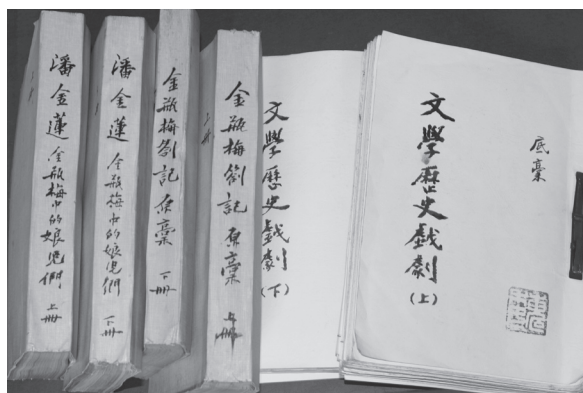 潘金蓮 金瓶梅中的娘兒們 上冊
潘金蓮 金瓶梅中的娘兒們 下冊
金瓶梅劄記 原稾 下冊
金瓶梅劄記 原稾 上冊
文學歷史戲劇(下)
文學歷史戲劇(上)
底稾